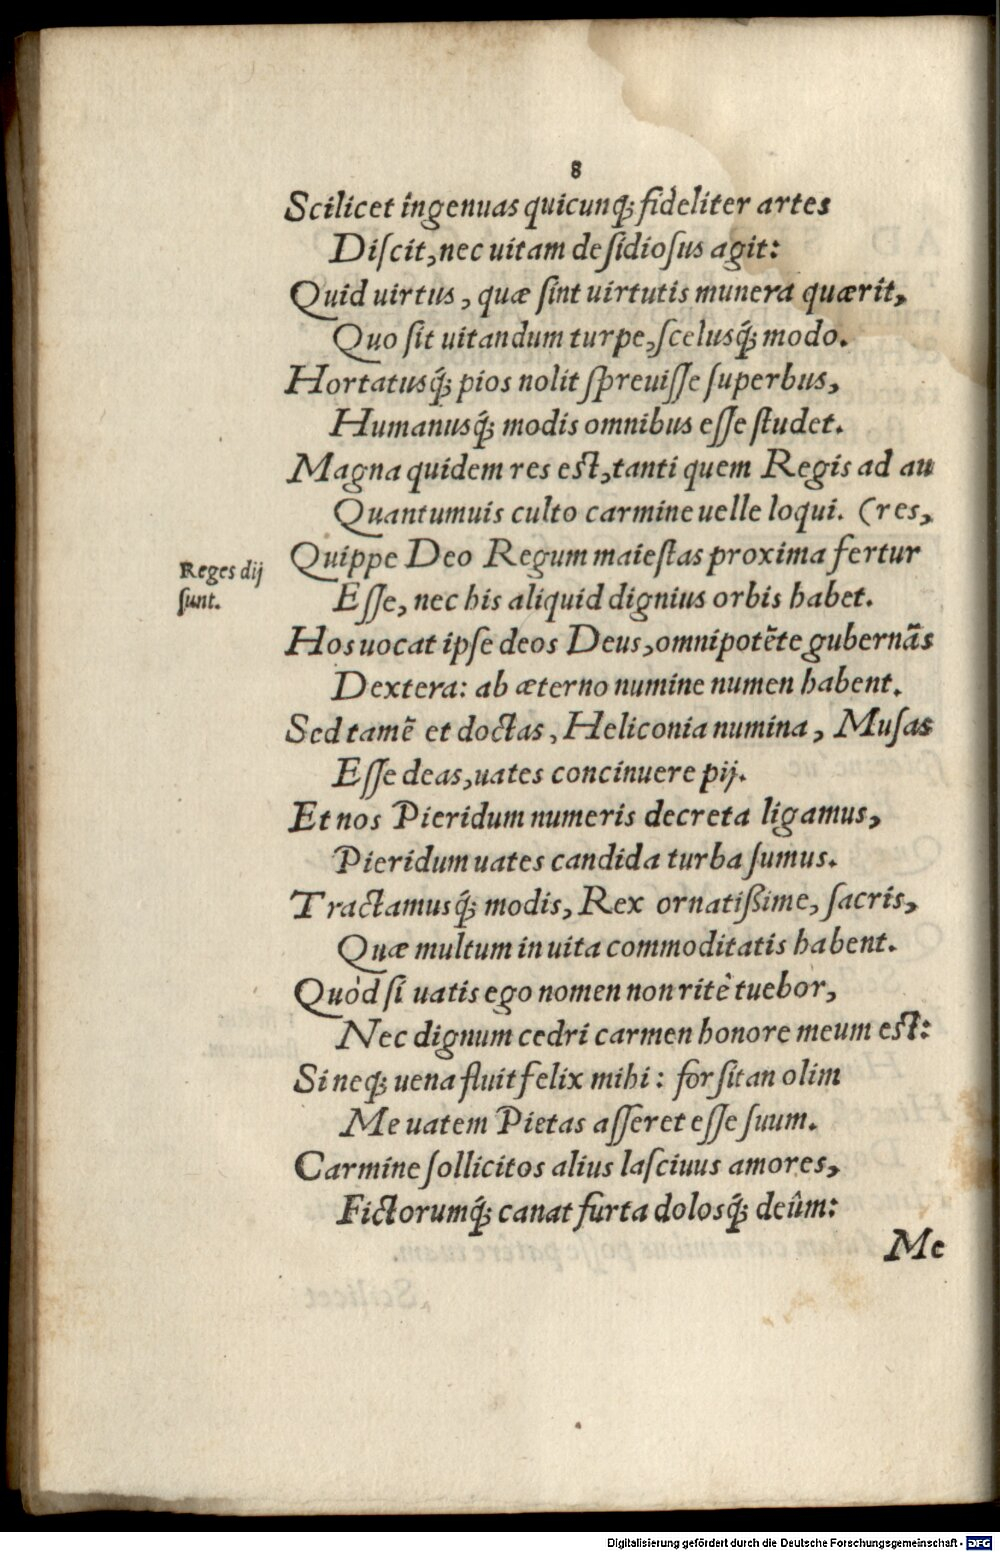 8
Scilicet ingenuas quicunq́; fideliter artes
Diſcit, nec uitam deſidioſus agit:
Quid uirtus, quæ ſint uirtutis munera quærit,
Quo ſit uitandum turpe, ſcelusq́; modo.
Hortatusq́; pios nolit ſpreuiſſe ſuperbus,
Humanusq́; modis omnibus eſſe ſtudet.
Magna quidem res eſt, tanti quem Regis ad au
Quantumuis culto carmine uelle loqui. (res,
Quippe Deo Regum maieſtas proxima fertur
Reges dij
ſunt.
Eſſe, nec his aliquid dignius orbis habet.
Hos uocat ipſe deos Deus, omnipotẽte gubernãs
Dextera: ab æterno numine numen habent.
Sed tamẽ et doctas, Heliconia numina, Muſas
Eſſe deas, uates concinuere pij.
Et nos Pieridum numeris decreta ligamus,
Pieridum uates candida turba ſumus.
Tractamusq́; modis, Rex ornatißime, ſacris,
Quæ multum in uita commoditatis habent.
Quòd ſi uatis ego nomen non ritè tuebor,
Nec dignum cedri carmen honore meum eſt:
Si neq; uena fluit felix mihi: forſitan olim
Me uatem Pietas aſſeret eſſe ſuum.
Carmine ſollicitos alius laſciuus amores,
Fictorumq́; canat furta dolosq́; deûm:
Me
Digitalisierung gefördert durch die Deutsche Forschungsgemeinschaft - DFG